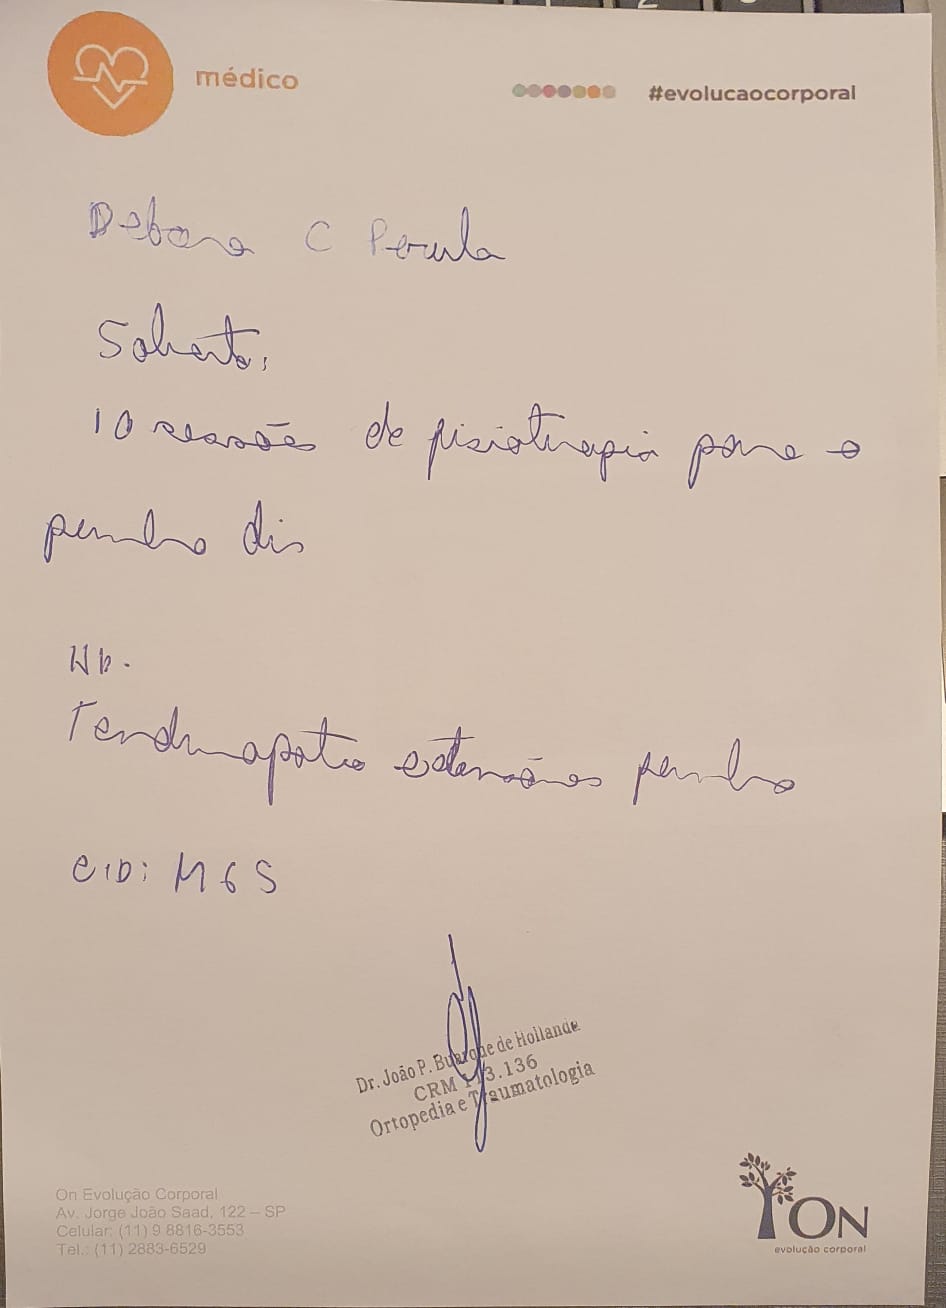 médico
#evolucaocorporal
Debora C Perula
Solicito:
10 sessões de fisioterapia para o
punho dir
HD.
Tendinopatia extensores punho
CID: M65
Dr. João P. Buarque de Hollanda
CRM 113.136
Ortopedia e Traumatologia
On Evolução Corporal
Av. Jorge João Saad, 122 – SP
Celular: (11) 9 8816-3553
Tel.: (11) 2883-6529
ON
evolução corporal